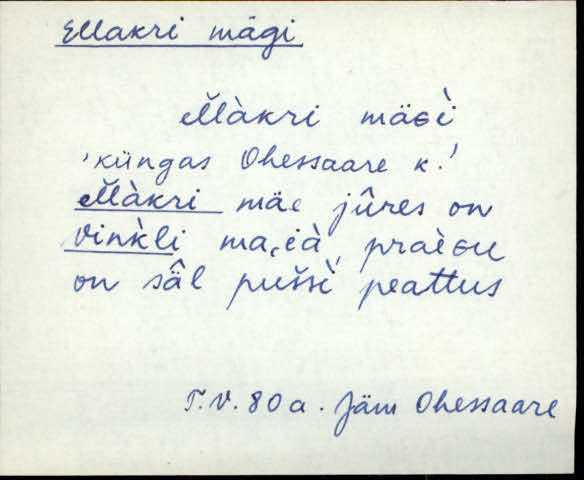 Ellakri mägi
ellàkri mäɢì
'küngas Ohessaare k.'
ellàkri mäe jûres on
vink̀li ma,ià, praèɢu
on säl pušsì peattus
T.V. 80 a. Jäm Ohessaare